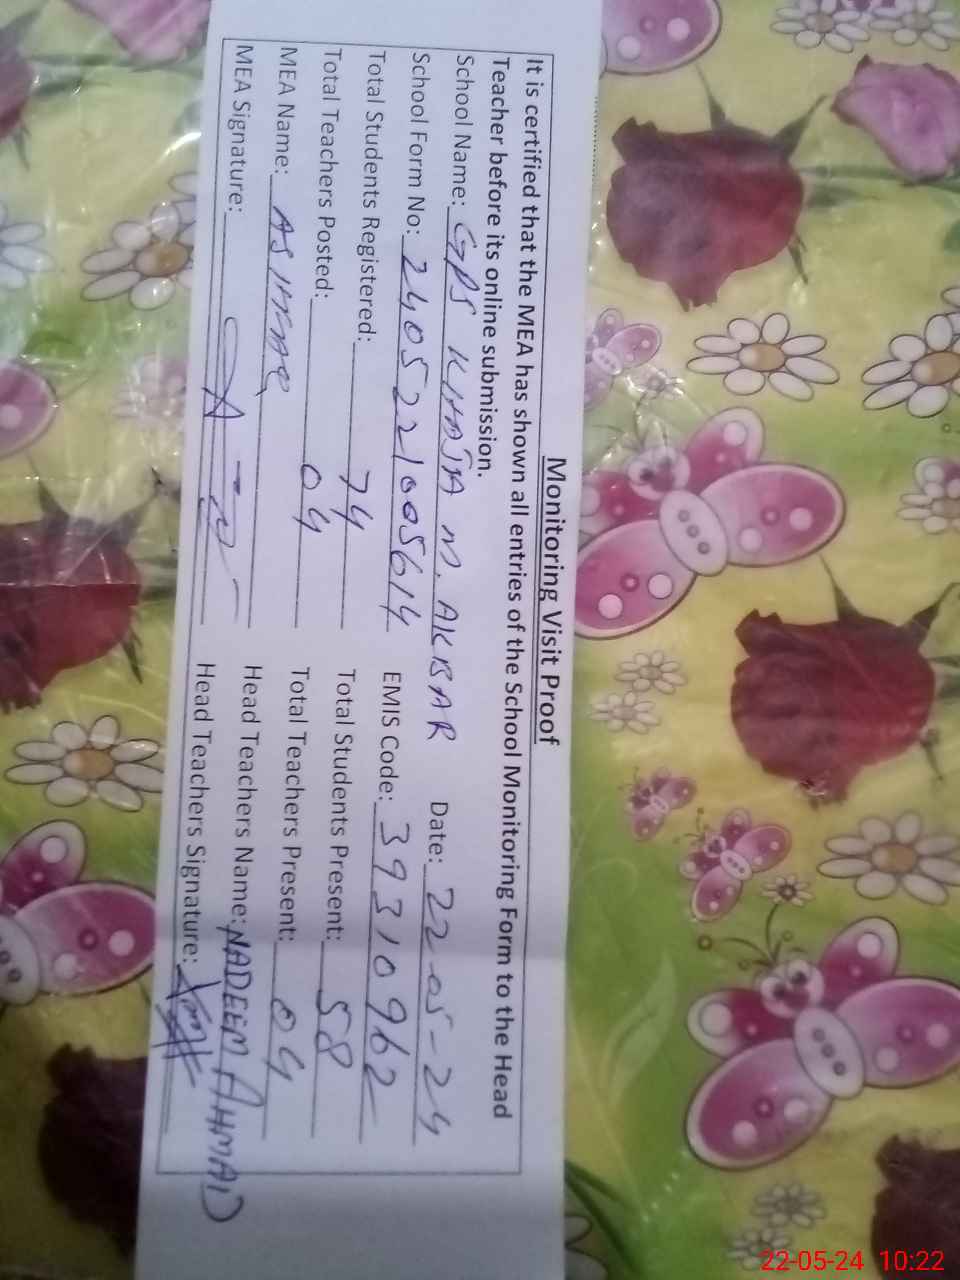 Monitoring Visit Proof
It is certified that the MEA has shown all entries of the School Monitoring Form to the Head
Teacher before its online submission.
School Name: GPS KHAJA M. AKBAR Date: 22-05-24
School Form No: 2405221005614 EMIS Code: 39310962
Total Students Registered: 74 Total Students Present: 58
Total Teachers Posted: 04 Total Teachers Present: 04
MEA Name: Head Teachers Name: NADEEM AHMAD
MEA Signature: Head Teachers Signature:
22-05-24 10:22